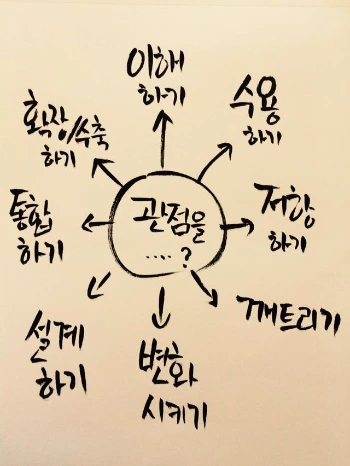 이해
하기
수용
하기
확장/수축
하기
관점을
.....?
저항
하기
통합
하기
깨트리기
설계
하기
변화
시키기